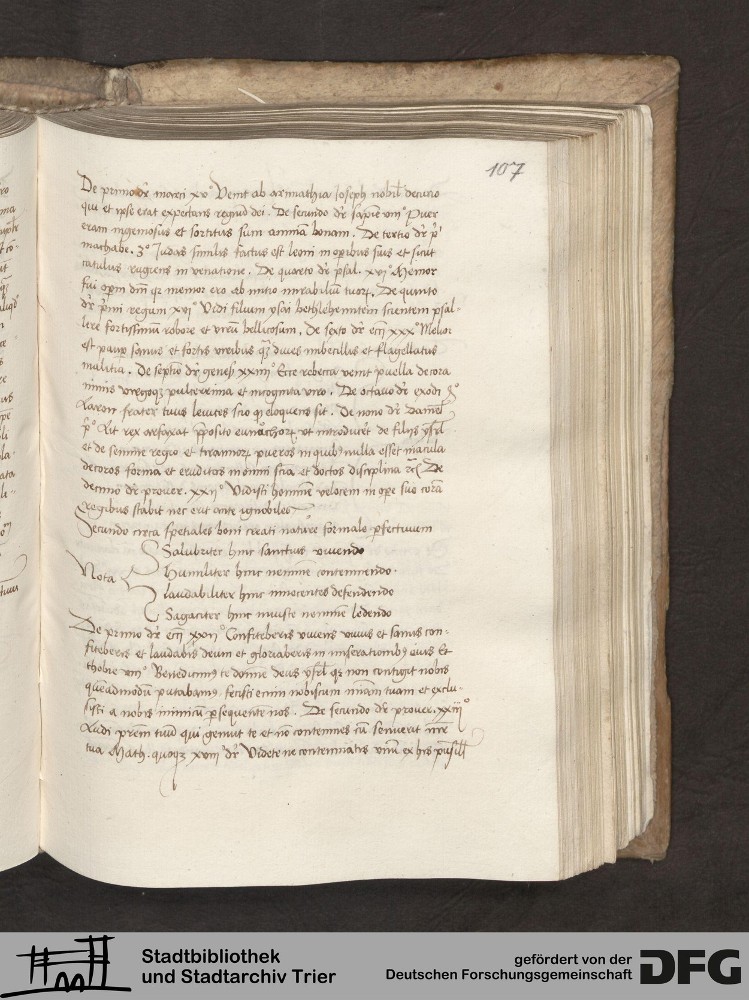 107
De primo dr̄ marci xv° Venit ab arimathia Joseph nobil' decurio
qui et ipse erat expectans regnū dei. De secundo dr̄ sapiē viii° Puer
eram ingeniosus et sortitus sum animā bonam. De tertio dr̄ p'
machabe. 3° Judas similis factus est leoni in opibus suis et sicut
catulus rugiens in venatione. De quarto dr̄ psal. xvi° Memor
fui opm dn̄i qz memor ero ab initio mirabiliū tuorꝝ. De quinto
dr̄ p̄mi regum xvi° Vidi filium ysai bethlehemitem scientem psal-
lere fortissimū robore et virū bellicosum. De sexto dr̄ ecc̄j xxx° Melior
est paup sanus et fortis viribus qz diues imbecillis et flagellatus
malitia. De septīo dr̄ genes xxiiii° Ecce rebecca venit puella decora
nimis virgoqz pulcerrima et incognita viro. De octauo dr̄ exodi
Aaron frater tuus leuites scio qz eloquens sit. De nono dr̄ Daniel
p° Ait rex asfaxat p̄posito eunuchorꝝ vt introduret de filijs ysrl
et de semine regio et tirannorꝝ pueros in quib; nulla esset macula
decoros forma et eruditos in omni sc̄ia et doctos disciplina &c̄ De
decimo dr̄ prouer. xxii° Vidisti hominē velocem in ope suo corā
regibus stabit nec erit ante ignobiles
Secundo circa spetiales boni creati nature formale pfectiuum
Salubriter hinc sanctius viuendo
Nota Humiliter hinc neminē contemnendo.
laudabiliter hinc innocentes defendendo
Sagaciter hinc iniuste neminē ledendo
De primo dr̄ ecc̄j xvii° Confiteberis viuens viuus et sanus con-
fiteberis et laudabis deum et gloriaberis in miserationib; eius Et
thobie viii° Benedicim; te domīe deus ysrl qz non contigit nobis
quēadmodū putabam;. fecisti enim nobiscum mīam tuam et exclu-
sisti a nobis inimicū psequentē nos. De secundo dr̄ prouer. xxiii°
Audi prēm tuū qui genuit te et nō contemnes cū senuerit mr̄
tua Math. quoqz xviii dr̄ Videte ne contemnatis vnū ex his pusill'
Stadtbibliothek
und Stadtarchiv Trier
gefördert von der
Deutschen Forschungsgemeinschaft
DFG